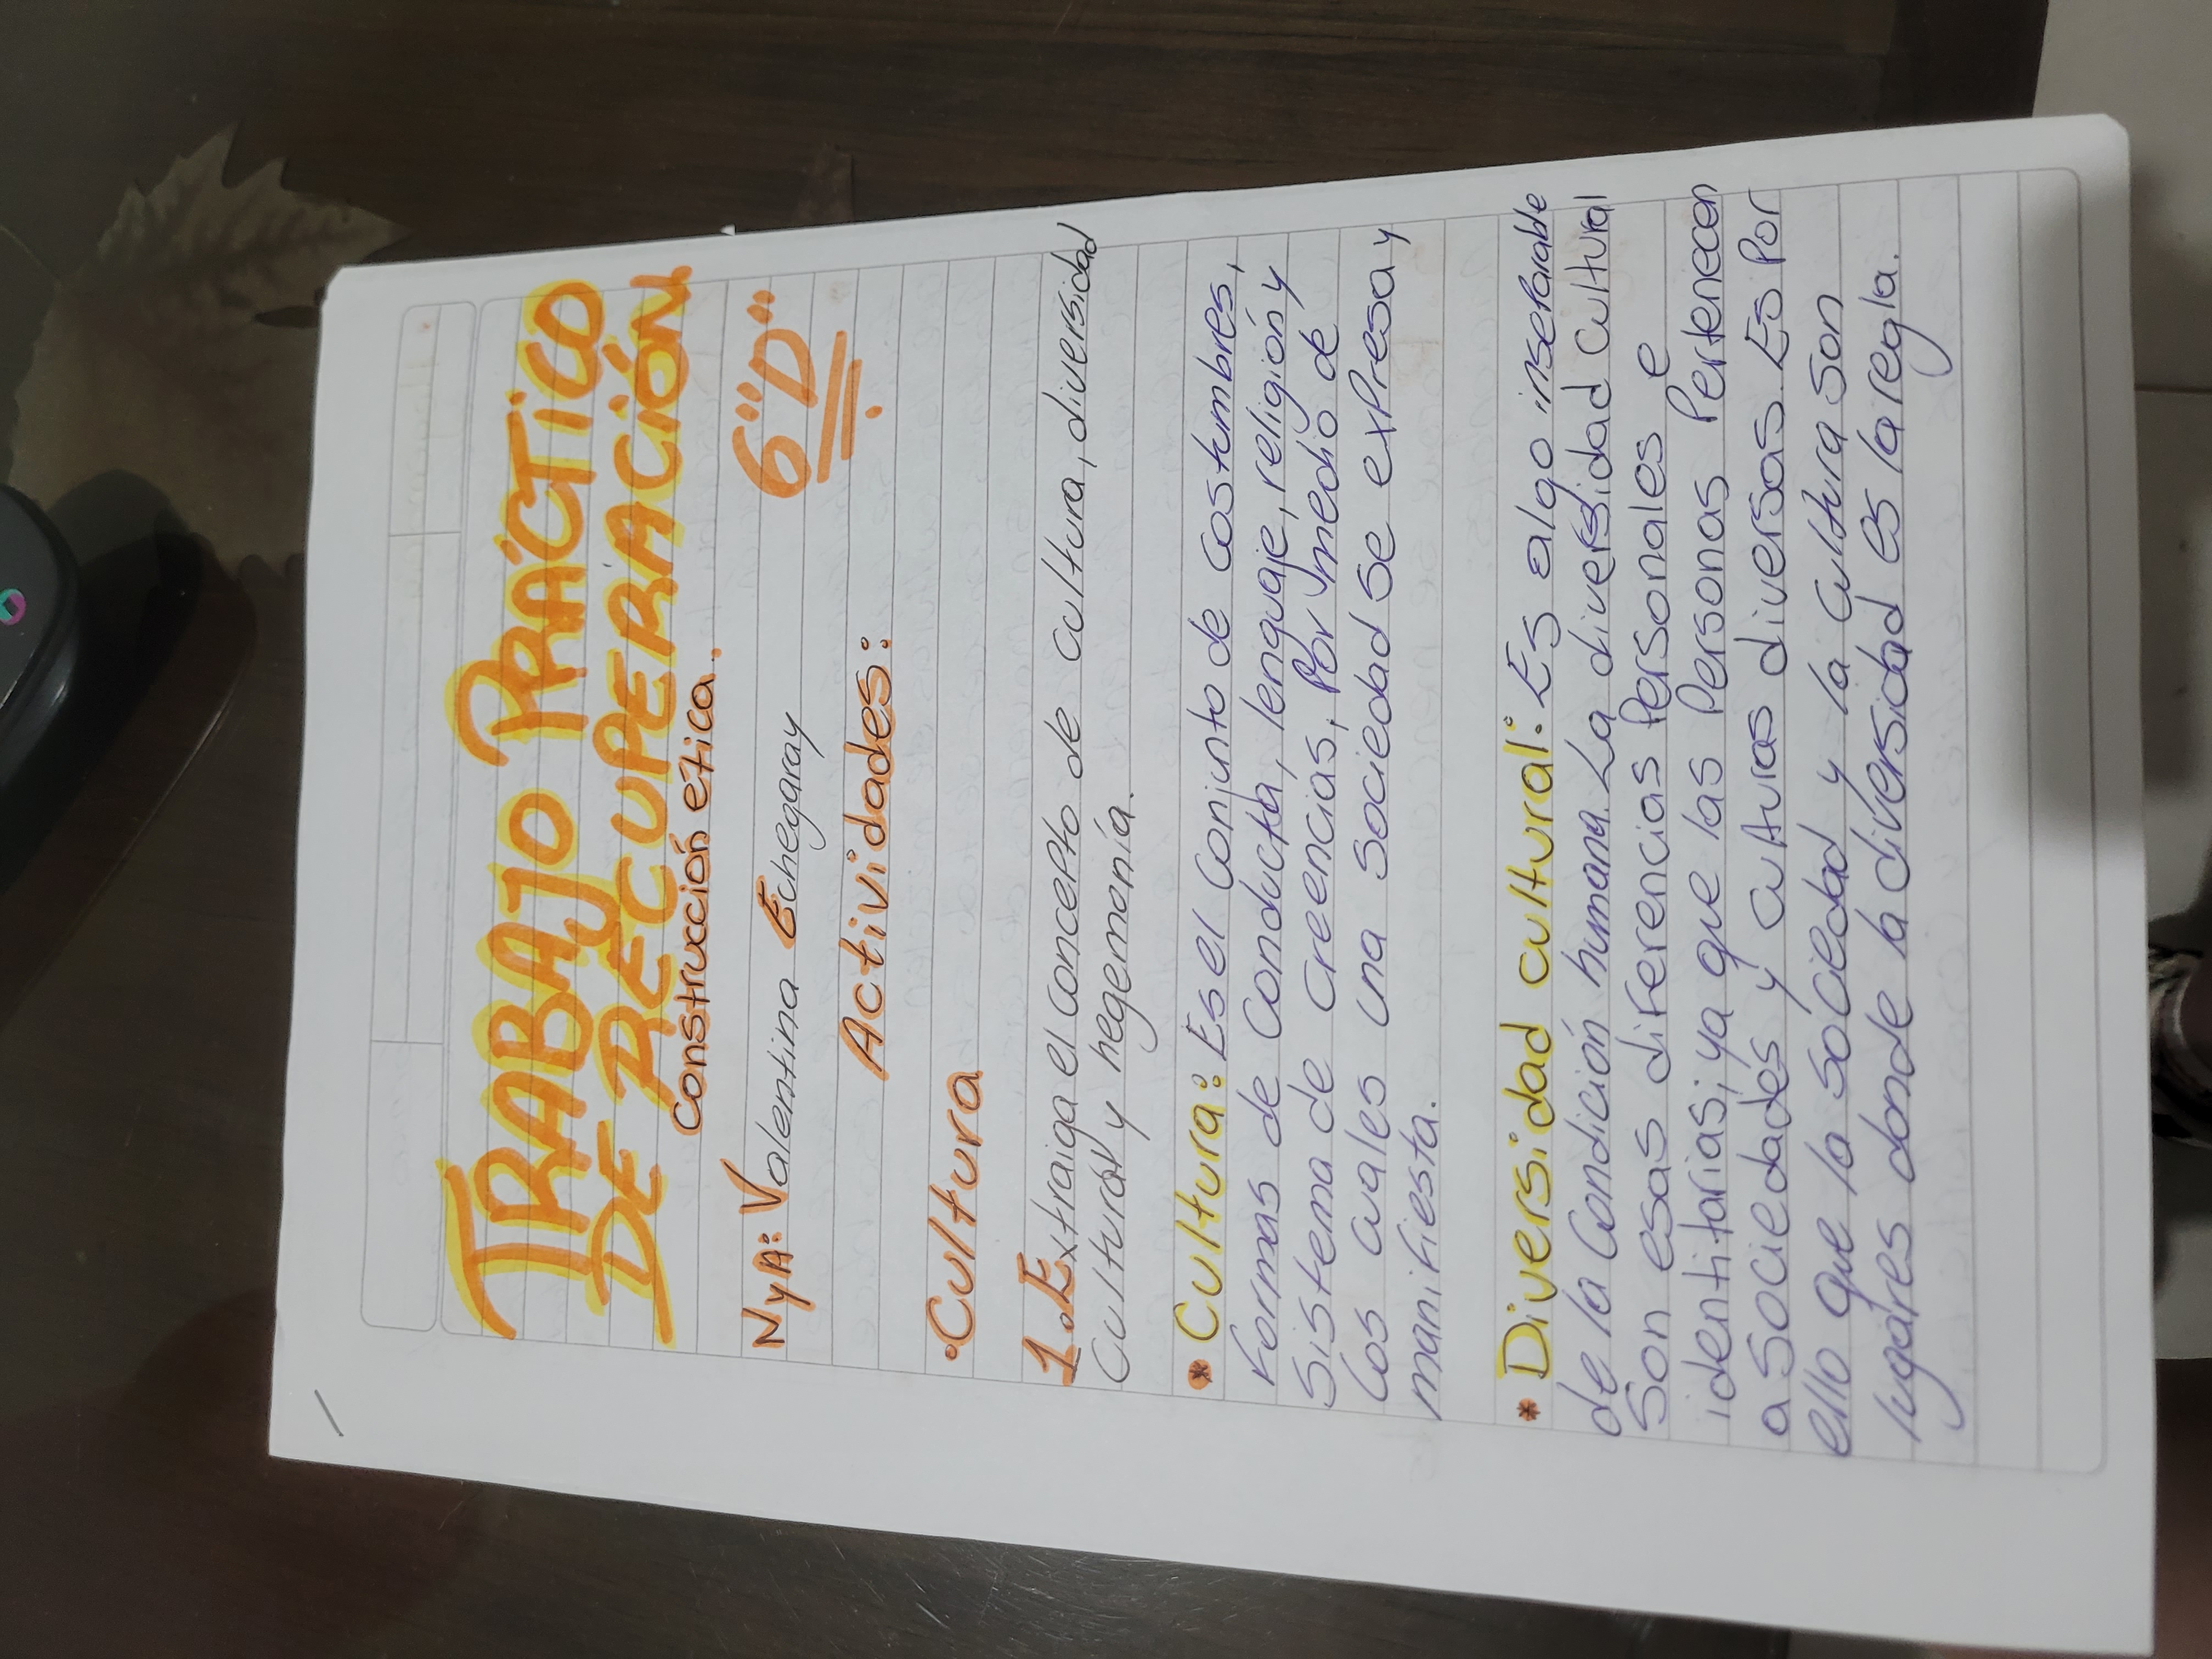 TRABAJO PRÁCTICO
DE RECUPERACIÓN
construcción ética.
NyA: Valentina Echegaray 6"D"
Actividades:
• Cultura
1. Extraiga el concepto de cultura, diversidad
cultural y hegemonía.
* Cultura: Es el conjunto de costumbres,
formas de conducta, lenguaje, religión y
sistema de creencias, por medio de
los cuales una sociedad se expresa y
manifiesta.
* Diversidad cultural: Es algo inseparable
de la condición humana. La diversidad cultural
son esas diferencias personales e
identitarias; ya que las personas pertenecen
a sociedades y culturas diversas. Es por
ello que la sociedad y la cultura son
lugares donde la diversidad es la regla.